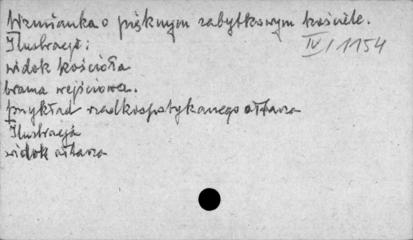 Wzmianka o pięknym zabytkowym kościele.
IV/1154
Ilustracje:
widok kościoła
brama wejściowa.
przykład rzadkospotykanego ołtarza
Ilustracja
widok ołtarza